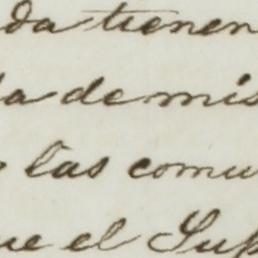 da tienen
da de mis
las comu
ue el Sup